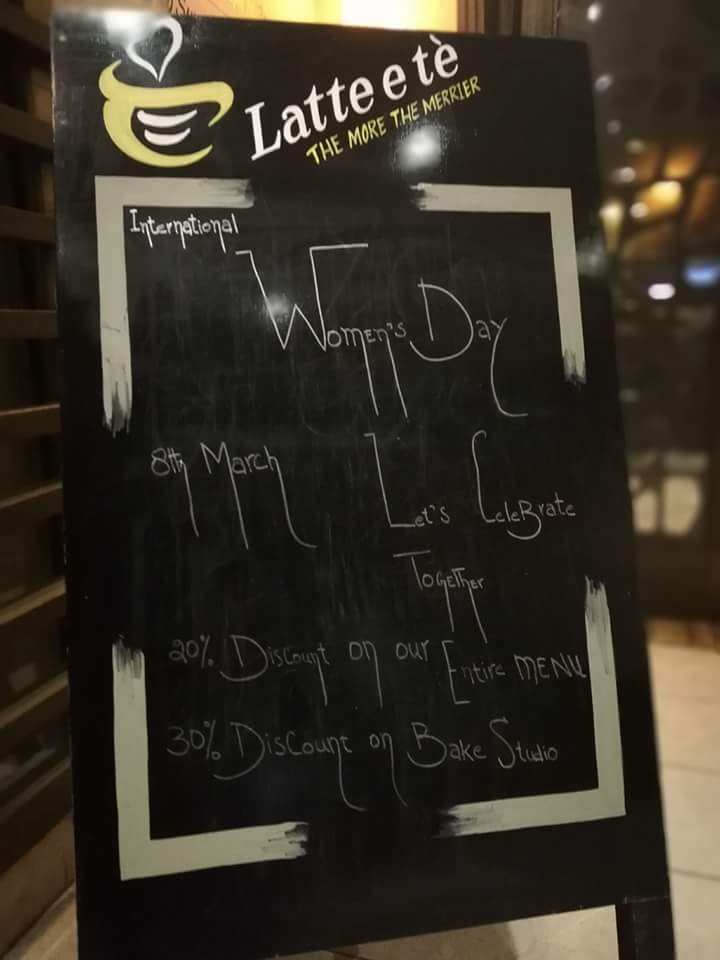 Latte e tè
THE MORE THE MERRIER
International
Women's Day
8th March Let's CeleBrate
Together
20% Discount on our Entire MENU
30% Discount on Bake Studio